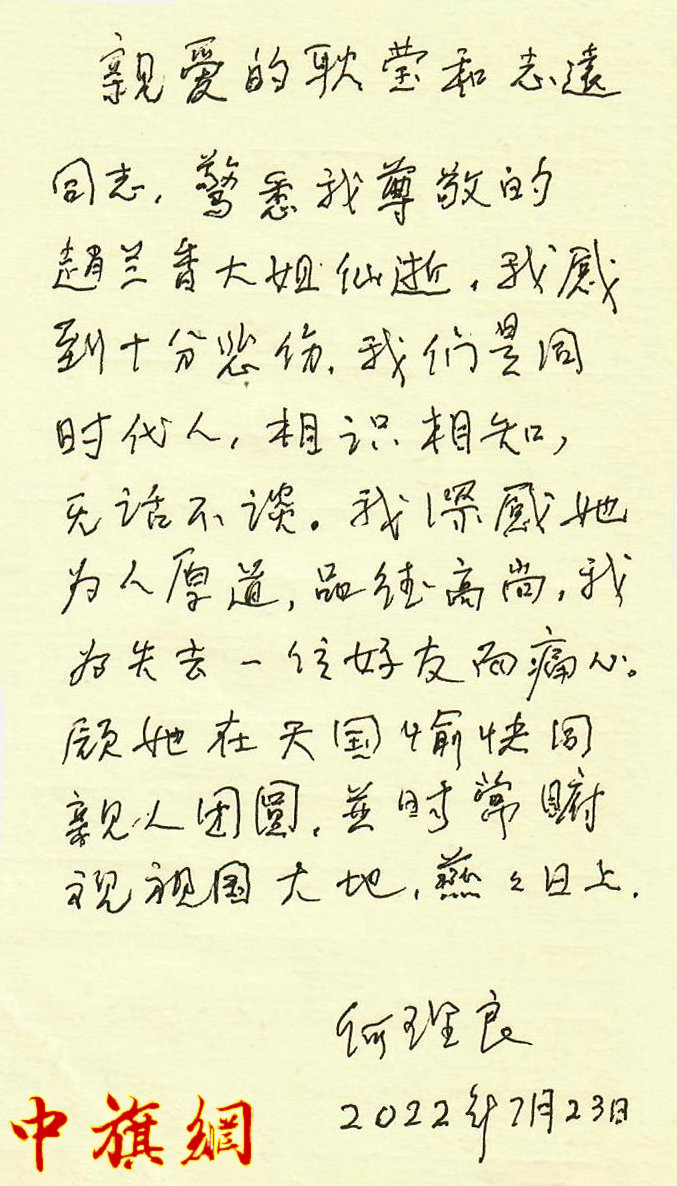 親爱的耿莹和志遠
同志，驚悉我尊敬的
趙兰香大姐仙逝，我感
到十分悲伤，我们是同
时代人，相识相知，
无话不谈。我深感她
为人厚道，品德高尚，我
为失去一位好友而痛心。
愿她在天国愉快同
親人团圓，並时常瞩
视祖国大地，蒸々日上．
何理良
2022年7月23日
中旗網